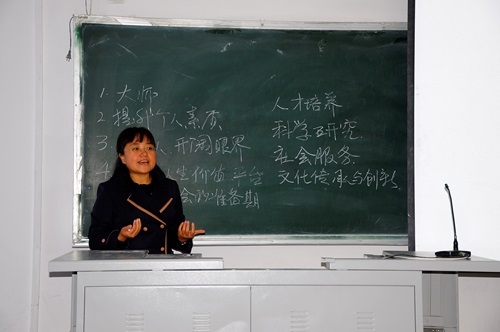 1 大师
2 提升个人素质
3 人开阔眼界
4 生价值
会的准备期
人才培养
科学研究
社会服务
文化传承与创新